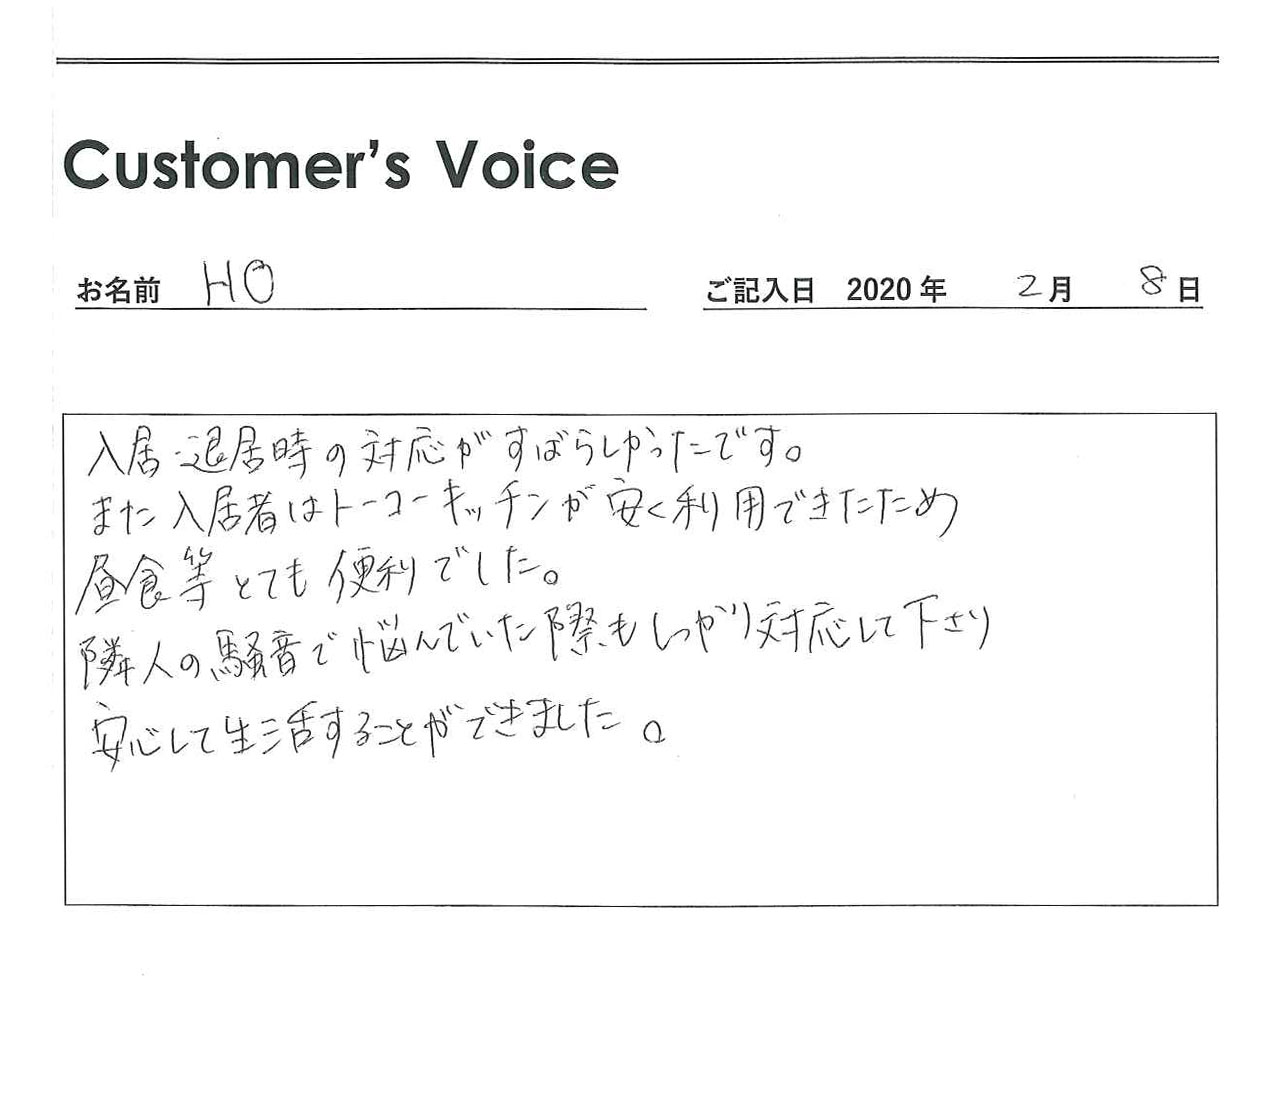 Customer's Voice
お名前 HO ご記入日 2020年 2月 8日
入居・退居時の対応がすばらしかったです。
また入居者はトーコーキッチンが安く利用できたため
昼食等とても便利でした。
隣人の騒音で悩んでいた際もしっかり対応して下さり
安心して生活することができました。